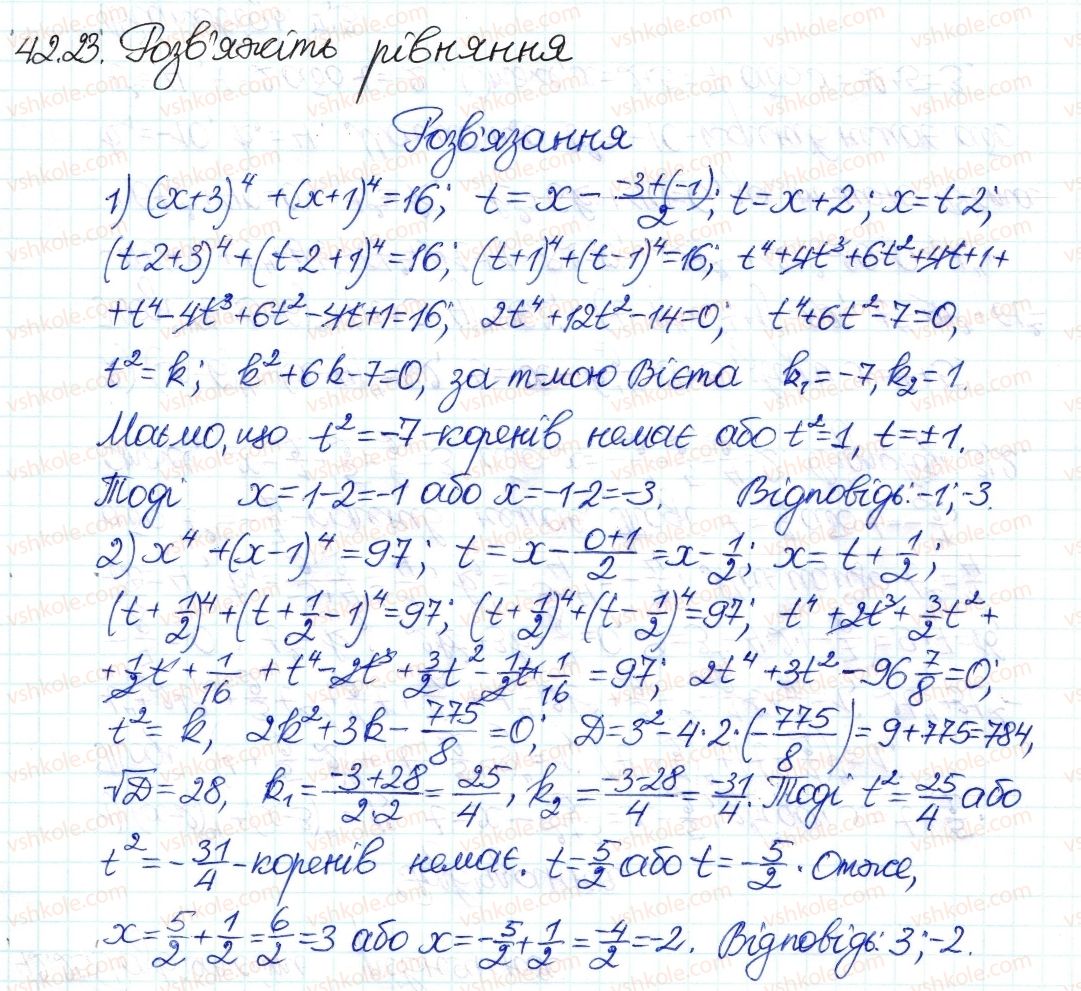 42.23. Розв'яжіть рівняння
Розв'язання
1) (x+3)⁴ + (x+1)⁴ = 16; t = x - (-3+(-1))/2; t = x+2; x = t-2;
(t-2+3)⁴ + (t-2+1)⁴ = 16; (t+1)⁴ + (t-1)⁴ = 16; t⁴ + 4t³ + 6t² + 4t + 1 +
+ t⁴ - 4t³ + 6t² - 4t + 1 = 16; 2t⁴ + 12t² - 14 = 0; t⁴ + 6t² - 7 = 0,
t² = k; k² + 6k - 7 = 0, за т-мою Вієта k₁ = -7, k₂ = 1.
Маємо, що t² = -7 - коренів немає або t² = 1, t = ±1.
Тоді x = 1-2 = -1 або x = -1-2 = -3. Відповідь: -1; -3.
2) x⁴ + (x-1)⁴ = 97; t = x - (0+1)/2 = x - 1/2; x = t + 1/2;
(t + 1/2)⁴ + (t + 1/2 - 1)⁴ = 97; (t + 1/2)⁴ + (t - 1/2)⁴ = 97; t⁴ + 2t³ + 3/2 t² +
+ 1/2 t + 1/16 + t⁴ - 2t³ + 3/2 t² - 1/2 t + 1/16 = 97; 2t⁴ + 3t² - 96 7/8 = 0;
t² = k, 2k² + 3k - 775/8 = 0; D = 3² - 4·2·(-775/8) = 9 + 775 = 784,
√D = 28, k₁ = (-3+28)/(2·2) = 25/4, k₂ = (-3-28)/4 = -31/4. Тоді t² = 25/4 або
t² = -31/4 - коренів немає. t = 5/2 або t = -5/2. Отже,
x = 5/2 + 1/2 = 6/2 = 3 або x = -5/2 + 1/2 = -4/2 = -2. Відповідь: 3; -2.